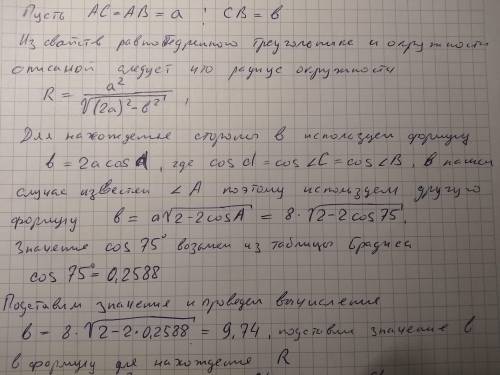 Пусть AC = AB = a ; CB = в
Из свойств равнобедренного треугольника и окружности
описаной следует что радиус окружности
R = a² / √((2a)² - в²) ,
Для нахождения стороны в используем формулу
в = 2a cos α, где cos α = cos ∠C = cos ∠B, в нашем
случае известен ∠A поэтому используем другую
формулу в = a√(2-2cosA) = 8·√(2-2cos75°).
Значение cos 75° возмем из таблицы Брадиса
cos 75° = 0,2588
Подставим значения и проведем вычисления
в = 8·√(2-2·0,2588) = 9,74, подставим значение в
в формулу для нахождения R